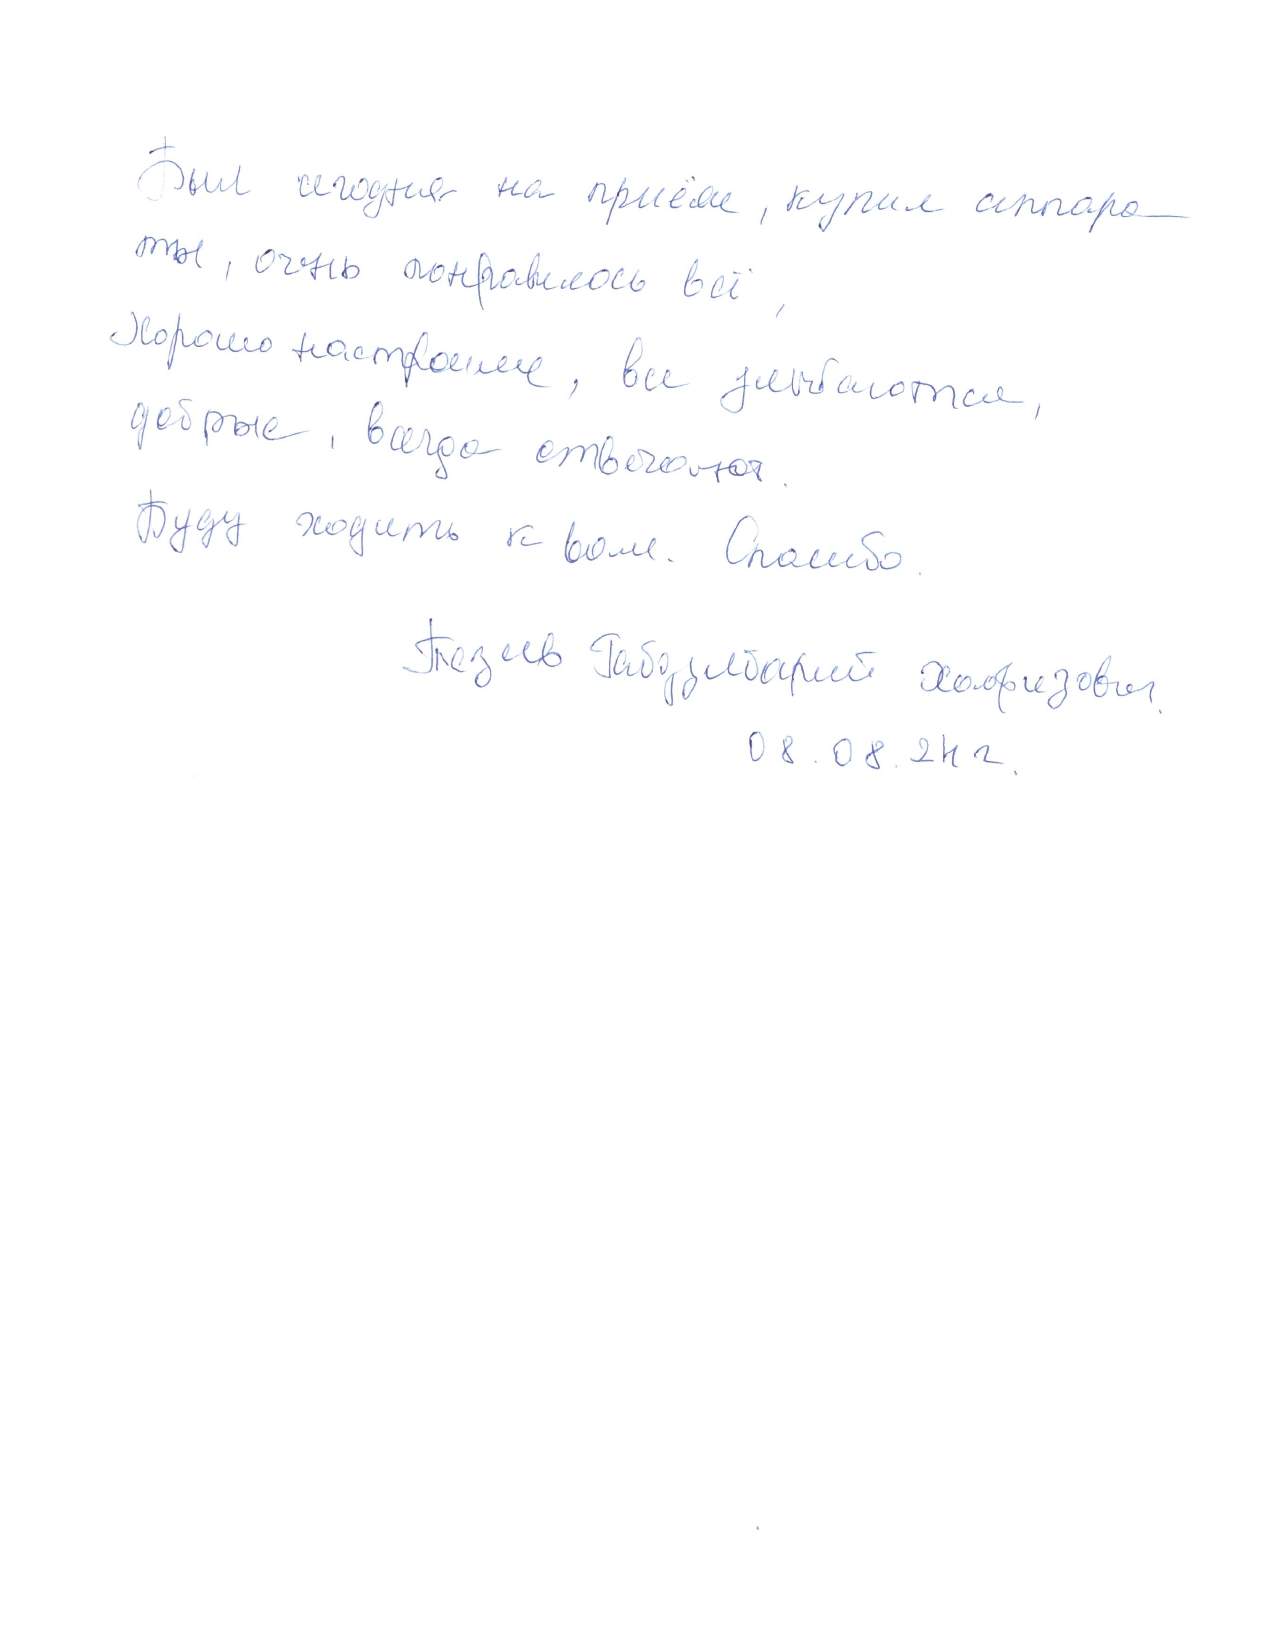 Был сегодня на приёме, купил аппара-
ты, очень понравилось всё,
Хорошо настроили, все улыбаются,
добрые, всегда отвечают.
Буду ходить к вам. Спасибо.
Габдулбарий Хафизович.
08.08.24 г.